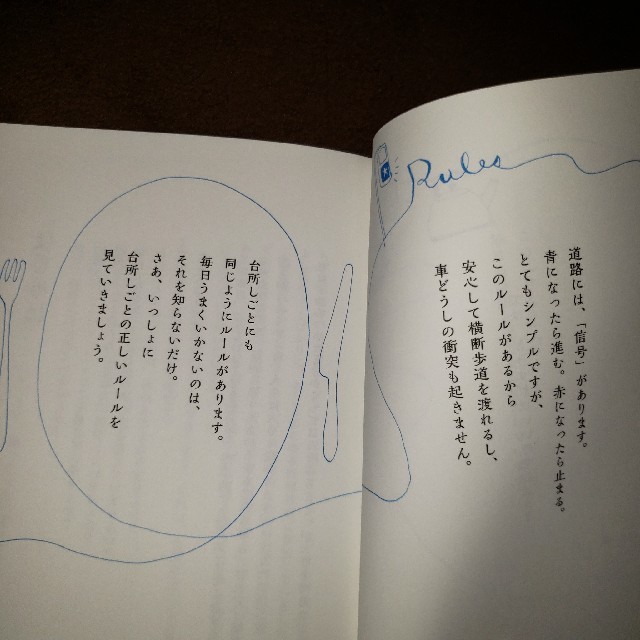 Rules
道路には、「信号」があります。
青になったら進む。赤になったら止まる。
とてもシンプルですが、
このルールがあるから
安心して横断歩道を渡れるし、
車どうしの衝突も起きません。
台所しごとにも
同じようにルールがあります。
毎日うまくいかないのは、
それを知らないだけ。
さあ、いっしょに
台所しごとの正しいルールを
見ていきましょう。